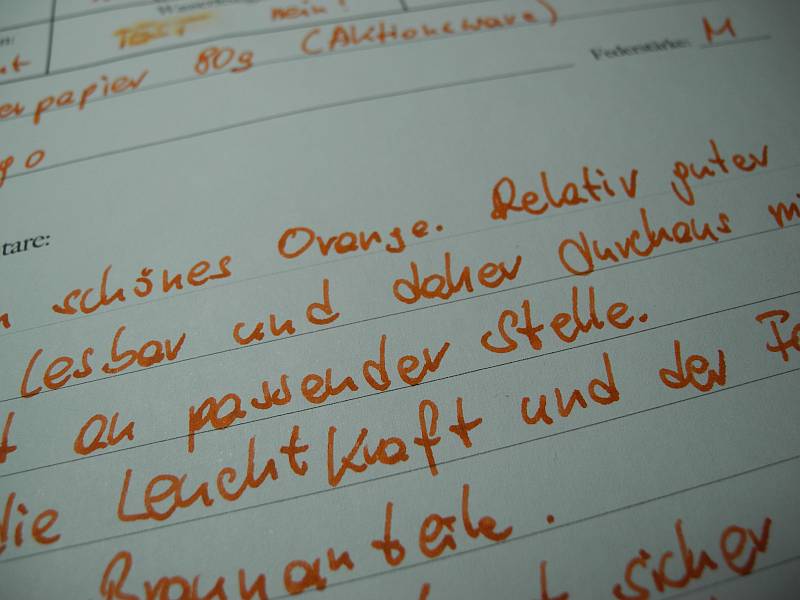 nein!
TEST
papier 80g (Aktionsware) Federstärke: M
tare:
schönes Orange. Relativ guter
Lesbar und daher durchaus
an passender Stelle.
die Leuchtkraft und der
Braunanteile.
sicher